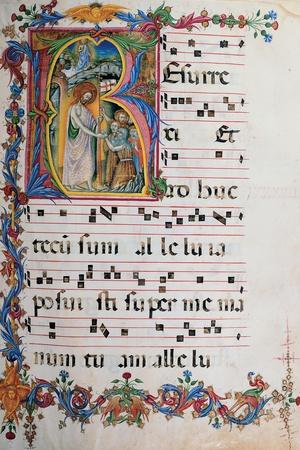 Resurre
xi Et
ad huc
tecū sum al le lu ia
po sui sti su per me ma
num tu am alle lu